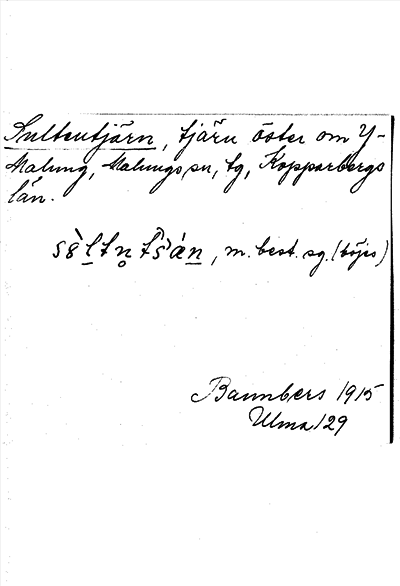 Sultentjärn, tjärn öster om Y-
Malung, Malungs sn, tg, Kopparbergs
län.
m. best. sg. (böjes)
Bannbers 1915
Ulma 129